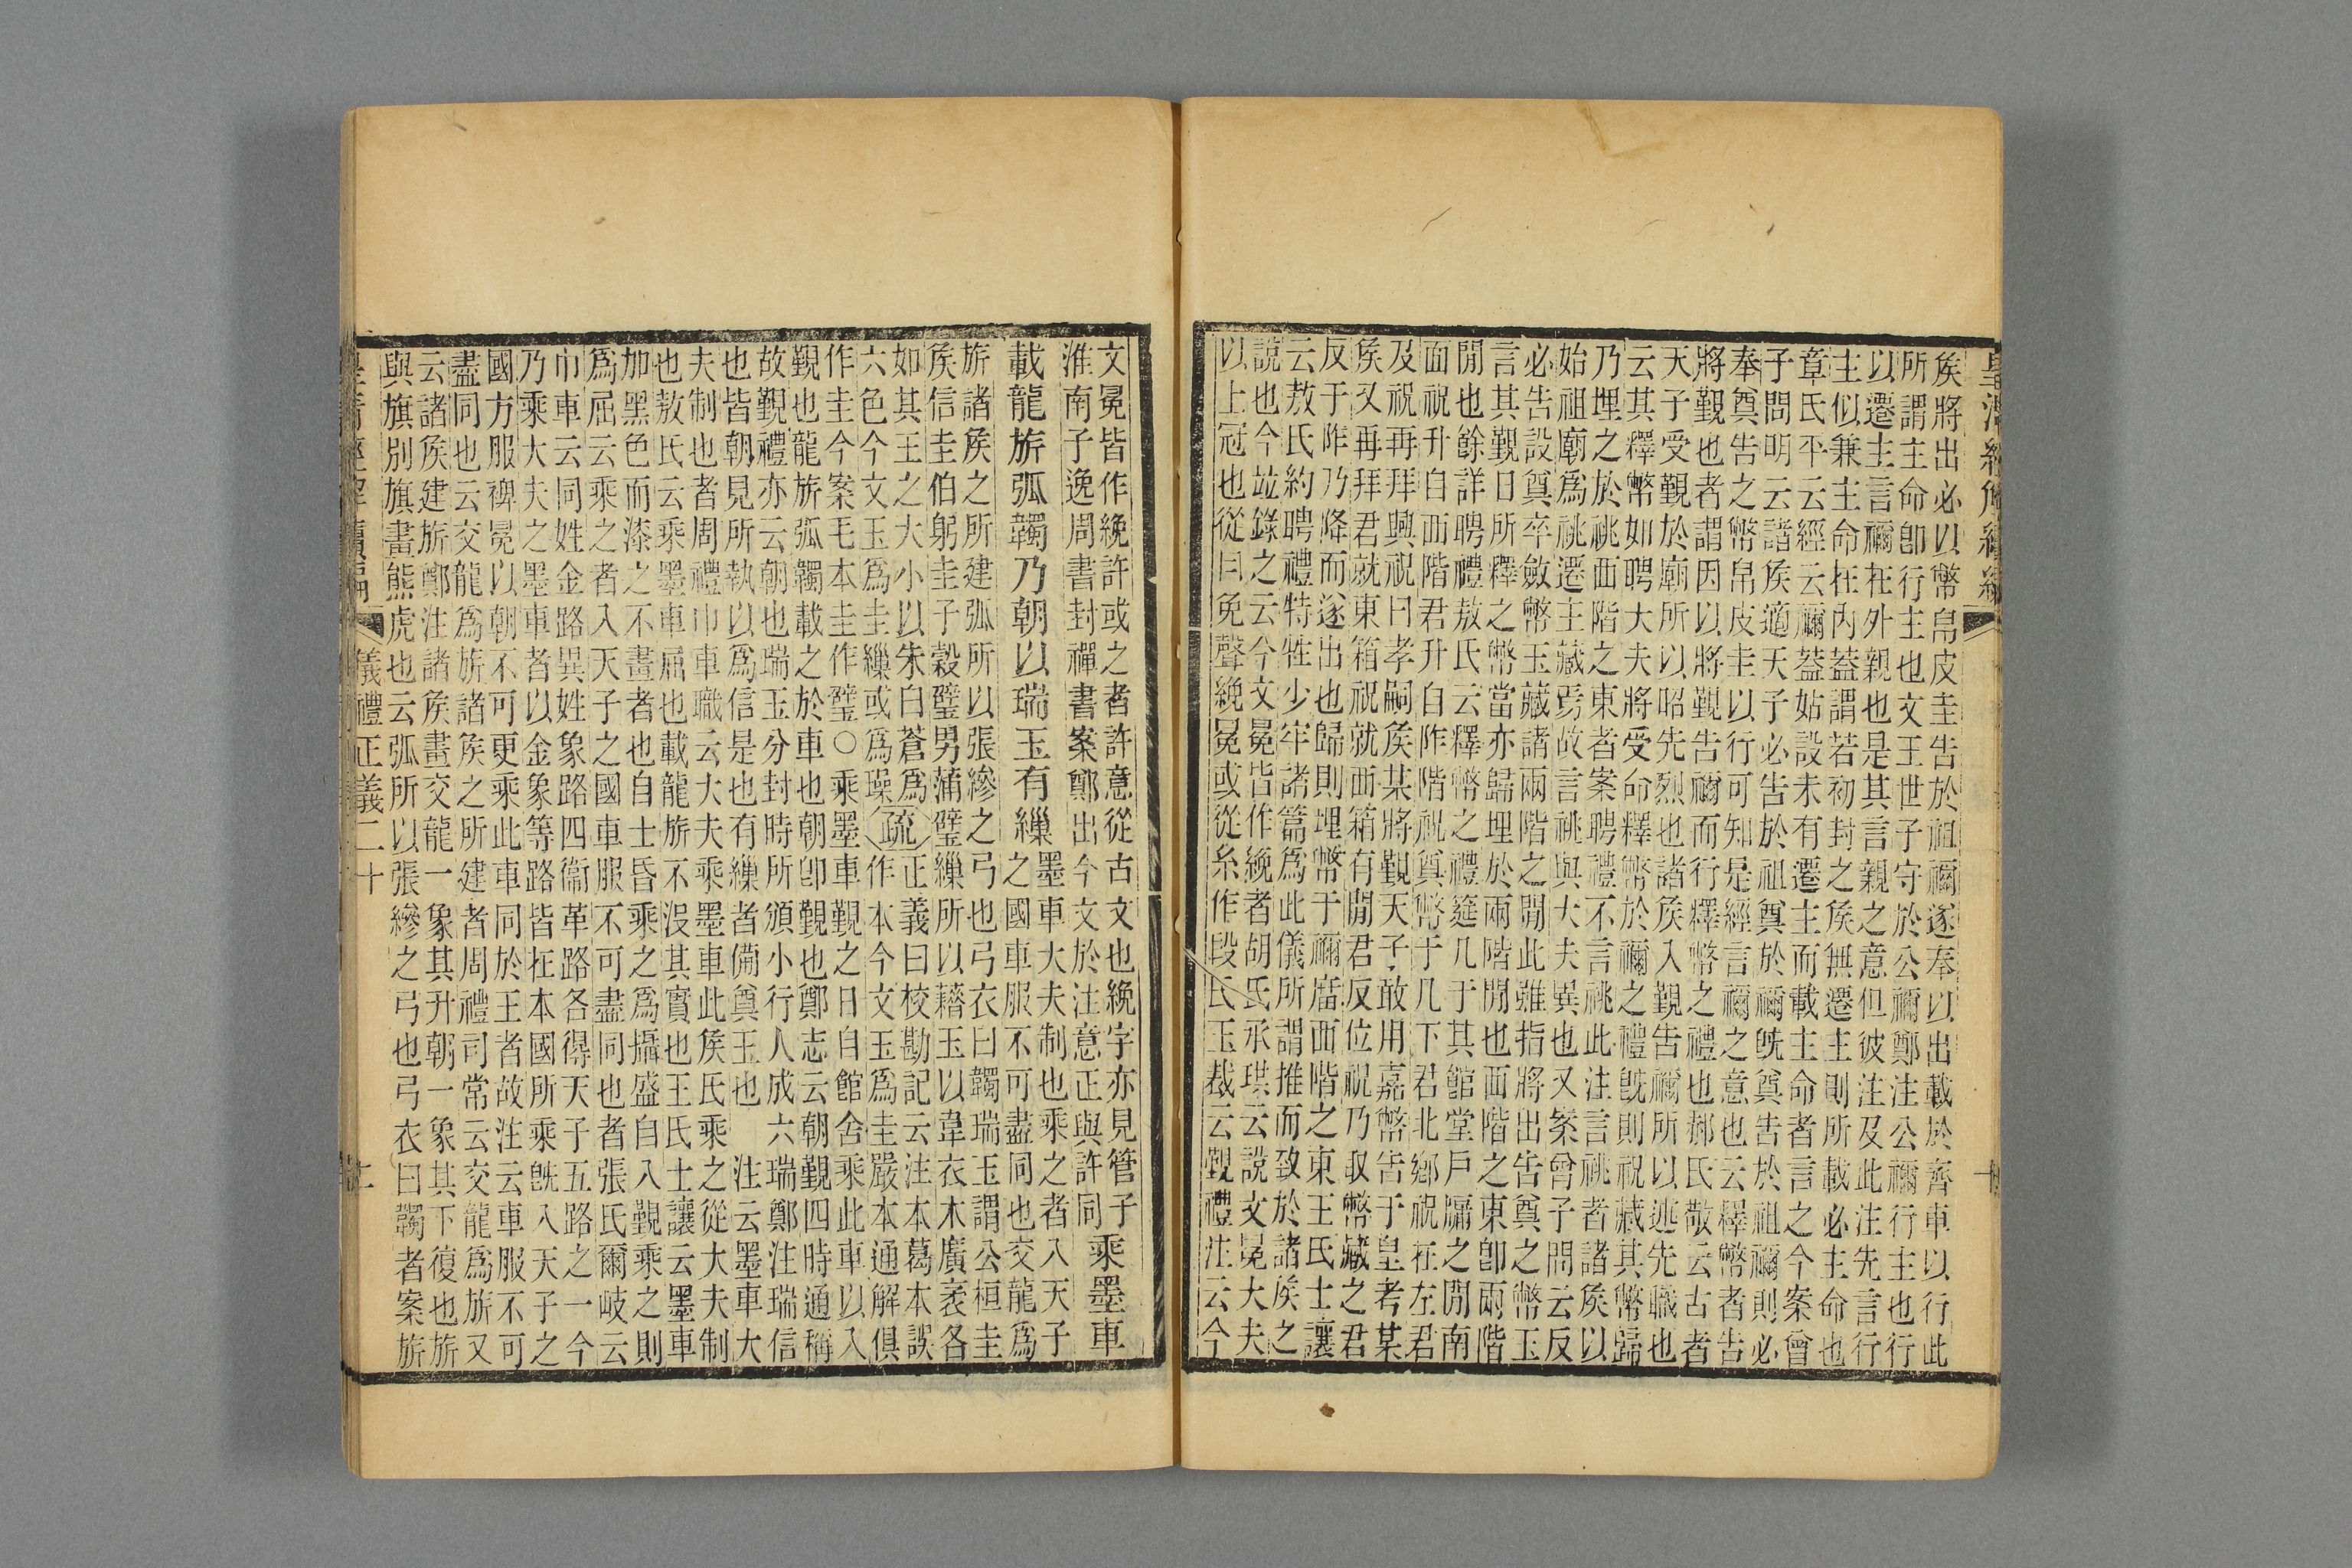 皇清經解續編
矦將出必以幣帛皮圭告於祖禰遂奉以出載於齊車以行此
所謂主命卽行主也文王世子守於公禰鄭注公禰行主也行
以遷主言禰在外親也是其言親之意但彼注及此注先言行
主似兼主命在內葢謂若初封之矦無遷主則所載必主命也
章氏平云經云禰葢姑設未有遷主而載主命者言之今案曾
子問明云諸矦適天子必告於祖奠於禰旣奠告於祖禰則必
奉奠告之幣帛皮圭以行可知是經言禰之意也云釋幣者告
將覲也者謂因以將覲告禰而行釋幣之禮也郝氏敬云古者
天子受覲於廟所以昭先烈也諸矦入覲告禰所以述先職也
云其釋幣如聘大夫將受命釋幣於禰之禮旣則祝藏其幣歸
乃埋之於祧西階之東者案聘禮不言祧此注言祧者諸矦以
始祖廟爲祧遷主藏焉故言祧與大夫異也又案曾子問云反
必告設奠卒斂幣玉藏諸兩階之閒此雖指將出告奠之幣玉
言其覲日所釋之幣當亦歸埋於兩階閒也西階之東卽兩階
閒也餘詳聘禮敖氏云釋幣之禮筵几于其館堂戶牖之閒南
面祝升自西階君升自阼階祝奠幣于几下君北鄉祝在左君
及祝再拜興祝曰孝嗣矦某將覲天子敢用嘉幣告于皇考某
矦又再拜君就東箱祝就西箱有閒君反位祝乃取幣藏之君
反于阼乃降而遂出也歸則埋幣于禰廟西階之東王氏士讓
云敖氏約聘禮特牲少牢諸篇爲此儀所謂推而致於諸矦之
說也今竝錄之云今文冕皆作絻者胡氏承珙云說文冕大夫
以上冠也從曰免聲絻冕或從糸作段氏玉裁云覲禮注云今
文冕皆作絻許或之者許意從古文也絻字亦見管子
淮南子逸周書封禪書案鄭出今文於注意正與許同
乘墨車
載龍旂弧韣乃朝以瑞玉有繅
墨車大夫制也乘之者入天子
之國車服不可盡同也交龍爲
旂諸矦之所建弧所以張縿之弓也弓衣曰韣瑞玉謂公桓圭
矦信圭伯躬圭子穀璧男蒲璧繅所以藉玉以韋衣木廣袤各
如其玉之大小以朱白蒼爲
六色今文玉爲圭繅或爲璪
疏
正義曰校勘記云注本葛本誤
作本今文玉爲圭嚴本通解俱
作圭今案毛本圭作璧○乘墨車覲之日自館舍乘此車以入
覲也龍旂弧韣載之於車也朝卽覲也鄭志云朝覲四時通稱
故覲禮亦云朝也瑞玉分封時所頒小行人成六瑞鄭注瑞信
也皆朝見所執以爲信是也有繅者備奠玉也　注云墨車大
夫制也者周禮巾車職云大夫乘墨車此矦氏乘之從大夫制
也敖氏云乘墨車屈也載龍旂不沒其實也王氏士讓云墨車
加黑色而漆之不畫者也自士昏乘之爲攝盛自入覲乘之則
爲屈云乘之者入天子之國車服不可盡同也者張氏爾岐云
巾車云同姓金路異姓象路四衞革路各得天子五路之一今
乃乘大夫之墨車者以金象等路皆在本國所乘旣入天子之
國方服裨冕以朝不可更乘此車同於王者故注云車服不可
盡同也云交龍爲旂諸矦之所建者周禮司常云交龍爲旂又
云諸矦建旂鄭注諸矦畫交龍一象其升朝一象其下復也旂
與旗別旗畫熊虎也云弧所以張縿之弓也弓衣曰韣者案旂
皇清經解續編　儀禮正義二十